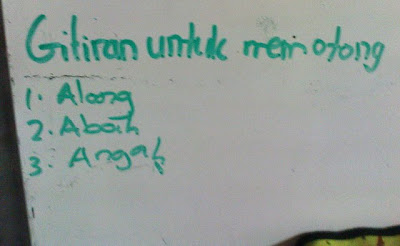 Gitiran untuk memotong
1. Along
2. Aboih
3. Angah